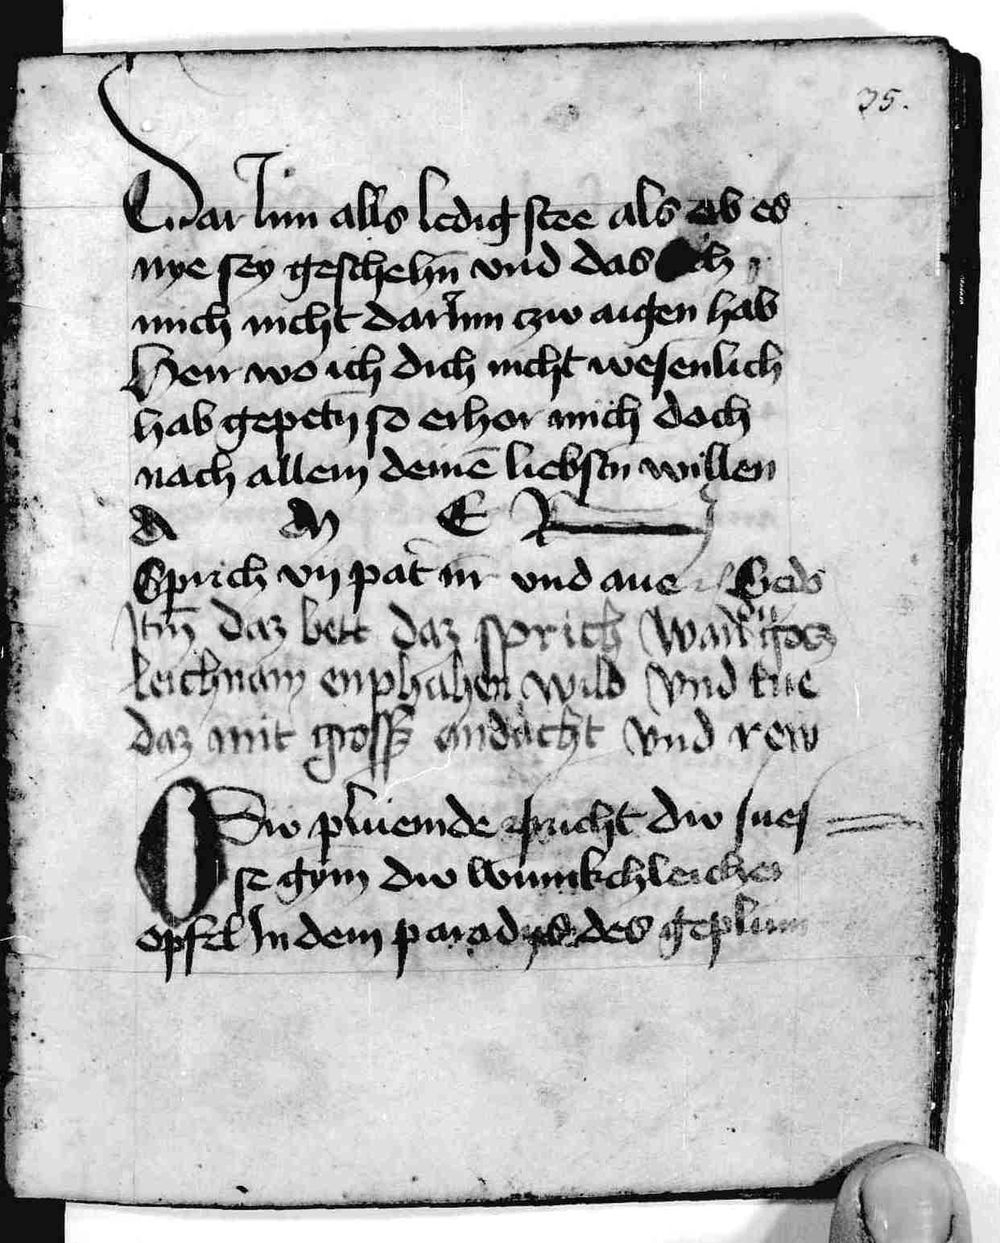 35.
Dar Inn alls ledig stee als ob es
nye sey geschehn̄ vnd das ich
mich nicht darInn czw aigen hab
Herr wo ich dich nicht wesenlich
hab gepetn̄ so erhor mich doch
nach allem deinē liebstn̄ willen
A M E N
Sprich vij pat nr̄ vnd aue
Itm̄ daz bett daz sprich wann du gocz
leichnam enphahen wild vnd tue
daz mit gross andacht vnd rew
O Diw plüemde frucht diw sues
se gym diw wunnkchleicher
opfel In dem paradys des geplüm